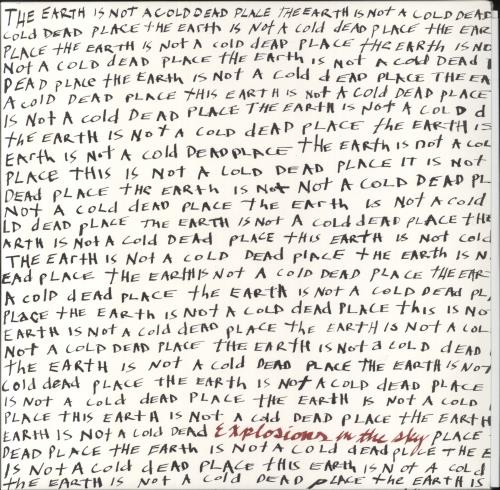 THE EARTH IS NOT A COLD DEAD PLACE THE EARTH IS NOT A COLD DEAD
COLD DEAD PLACE THE EARTH IS NOT A COLD DEAD PLACE THE EAR
PLACE THE EARTH IS NOT A COLD DEAD PLACE THE EARTH IS NO
NOT A COLD DEAD PLACE THE EARTH IS NOT A COLD DEAD
DEAD PLACE THE EARTH IS NOT A COLD DEAD PLACE THE EA
A COLD DEAD PLACE THIS EARTH IS NOT A COLD DEAD PLACE
IS NOT A COLD DEAD PLACE THE EARTH IS NOT A COLD D
THE EARTH IS NOT A COLD DEAD PLACE THE EARTH IS
EARTH IS NOT A COLD DEAD PLACE THE EARTH IS NOT A COL
PLACE THIS IS NOT A COLD DEAD PLACE IT IS NOT
DEAD PLACE THE EARTH IS NOT NOT A COLD DEAD PL
NOT A COLD DEAD PLACE THE EARTH IS NOT A COLD
LD DEAD PLACE THE EARTH IS NOT A COLD DEAD PLACE THE
ARTH IS NOT A COLD DEAD PLACE THIS EARTH IS NOT COLD
THE EARTH IS NOT A COLD DEAD PLACE THE EARTH IS N
EAD PLACE THE EARTH IS NOT A COLD DEAD PLACE THE EAR
A COLD DEAD PLACE THE EARTH IS NOT A COLD DEAD PL
PLACE THE EARTH IS NOT A COLD DEAD PLACE THIS IS NO
EARTH IS NOT A COLD DEAD PLACE THE EARTH IS NOT A COL
NOT A COLD DEAD PLACE THE EARTH IS NOT A COLD DEAD
THE EARTH IS NOT A COLD DEAD PLACE THE EARTH IS NOT
COLD DEAD PLACE THE EARTH IS NOT A COLD DEAD PLACE
IS NOT A COLD DEAD PLACE THE EARTH IS NOT A COLD
PLACE THIS EARTH IS NOT A COLD DEAD PLACE THE EARTH
EARTH IS NOT A COLD DEAD Explosions in the sky PLACE
DEAD PLACE THE EARTH IS NOT A COLD DEAD PLACE THE E
IS NOT A COLD DEAD PLACE THIS EARTH IS NOT A COLD
THE EARTH IS NOT A COLD DEAD PLACE THE EARTH IS